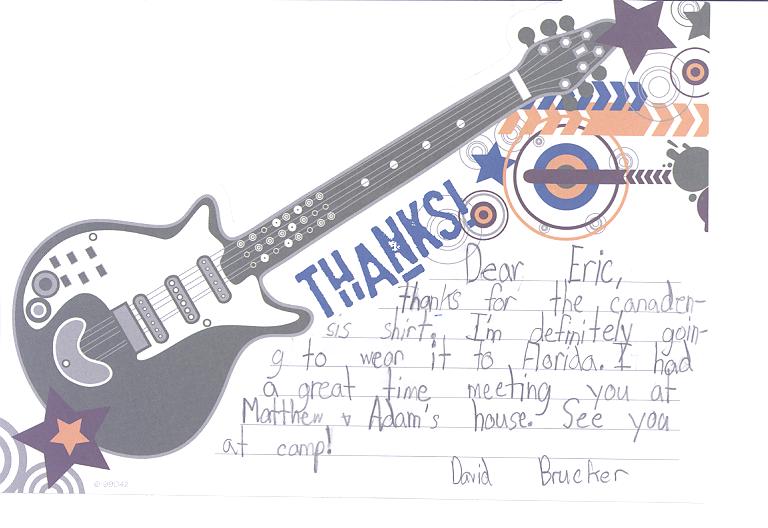 THANKS!
Dear Eric,
thanks for the canaden-
sis shirt. I'm definitely goin-
g to wear it to Florida. I had
a great time meeting you at
Matthew & Adam's house. See you
at camp!
David Brucker
© 99042